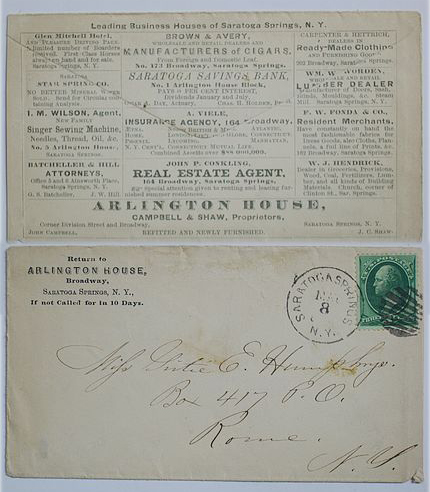 Leading Business Houses of Saratoga Springs, N. Y.
Glen Mitchell Hotel,
AND PLEASURE DRIVING PARK.
A limited number of Boarders
First-Class Horses
always on hand and for sale.
Saratoga Springs, N. Y.
SARATOGA
STAR SPRING CO.
NO BETTER MINERAL WATER
SOLD. Send for Circular
taining Analysis.
I. M. WILSON, Agent
NEW FAMILY
Singer Sewing Machine,
Needles, Thread, Oil, &c.
No. 5 Arlington House,
SARATOGA SPRINGS.
BATCHELLER & HILL
ATTORNEYS,
Office 3 and 4 Ainsworth Place,
Saratoga Springs, N. Y.
G. S. Batcheller. J. W. Hill.
BROWN & AVERY,
WHOLESALE AND RETAIL DEALERS AND
MANUFACTURERS of CIGARS,
From Foreign and Domestic Leaf.
No. 173 Broadway, Saratoga Springs.
SARATOGA SAVINGS BANK,
No. 1 Arlington House Block,
PAYS 6 PER CENT INTEREST
Dividends January and July.
DAY, Actuary. CHAS. H. HOLDEN,
A. VIELE,
INSURANCE AGENCY, 164 Broadway.
ETNA,
HOME,
PHENIX,
N. Y. CENT'L,
ATLANTIC,
CONNECTICUT,
MANHATTAN,
CONNECTICUT MUTUAL LIFE.
Combined Assets over $88,000,000.
JOHN P. CONKLING,
REAL ESTATE AGENT,
164 Broadway, Saratoga Springs,
special attention given to renting and leasing furnished
nished residences.
ARLINGTON HOUSE,
CAMPBELL & SHAW, Proprietors,
Corner Division Street and Broadway, SARATOGA SPRINGS, N. Y.
JOHN CAMPBELL. REFITTED AND NEWLY FURNISHED. J. C. SHAW.
CARPENTER & HETTRICH,
DEALERS IN
Ready-Made Clothing
AND FURNISHING GOODS
202 Broadway, Saratoga Springs.
WM. W. WORDEN,
WHOLESALE AND RETAIL
LUMBER DEALER
Manufacturer of Doors, Sash,
Blinds, Mouldings, &c. Steam
Mill Saratoga Springs, N. Y.
F. W. FONDA & CO.,
Resident Merchants,
Have constantly on hand the
most fashionable fabrics for
Dress Goods, also Cloths,
a full line of Prints, &c.
162 Broadway, Saratoga Springs.
W. J. HENDRICK,
Dealer in Groceries, Provisions,
Wood, Coal, Fertilizers,
ber, and all kinds of Building
Materials Church, corner of
Clinton St., Sar. Springs.
Return to
ARLINGTON HOUSE,
Broadway,
SARATOGA SPRINGS, N. Y.,
If not Called for in 10 Days.
SARATOGA SPRINGS
8
N.Y.
Miss E. Humphrey.
Box 417 P. O.
Rome.
N. Y.